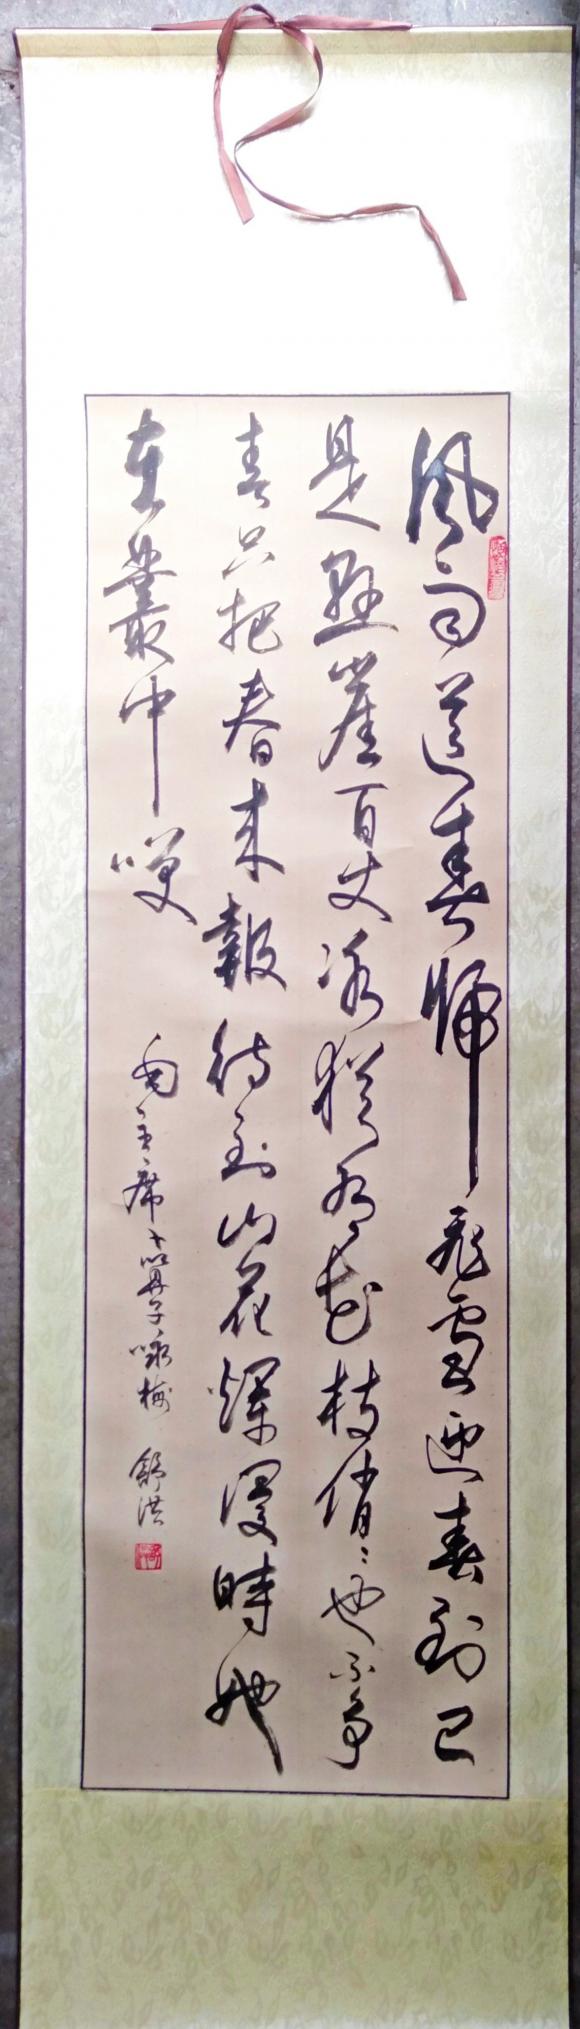 風雨送春歸飛雪迎春到已
是懸崖百丈冰猶有花枝俏〻也不爭
春只把春来報待到山花爛漫時她
在叢中咲
毛主席卜算子咏梅 舒洪